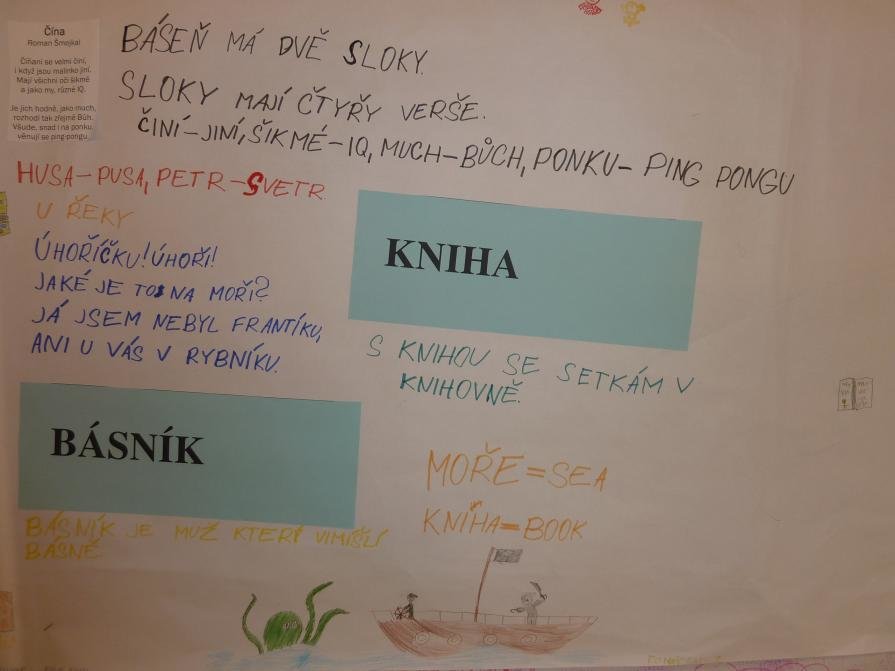 Čína
Roman Šmejkal
Číňani se velmi činí,
i když jsou malinko jiní.
Mají všichni oči šikmé
a jako my, různé IQ.
Je jich hodně, jako much,
rozhodl tak zřejmě Bůh.
Všude, snad i na ponku,
věnují se ping-pongu.
BÁSEŇ MÁ DVĚ SLOKY.
SLOKY MAJÍ ČTYŘY VERŠE.
ČINÍ–JINÍ, ŠIKMÉ–IQ, MUCH–BŮCH, PONKU–PING PONGU
HUSA–PUSA, PETR–SVETR.
U ŘEKY
ÚHOŘÍČKU! ÚHOŘI!
JAKÉ JE TO NA MOŘI?
JÁ JSEM NEBYL FRANTÍKU,
ANI U VÁS V RYBNÍKU.
KNIHA
S KNIHOU SE SETKÁM V
KNIHOVNĚ.
BÁSNÍK
BÁSNÍK JE MUŽ KTERÝ VIMIŠLÍ
BÁSNĚ
MOŘE=SEA
KNIHA=BOOK